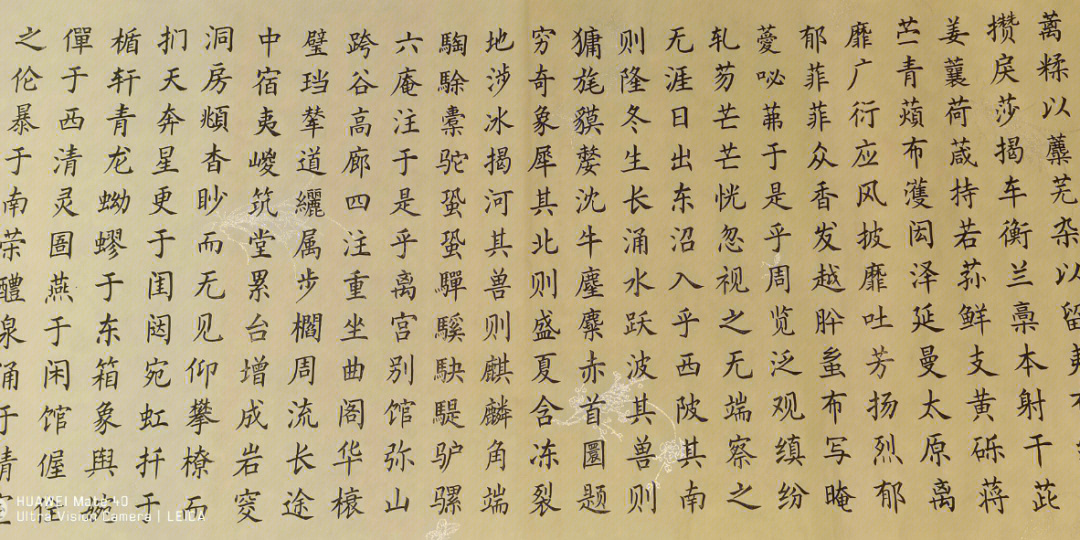 蓠糅以蘼芜杂以留
攒戾莎揭车衡兰槀本射干茈
姜蘘荷葴持若荪鲜支黄砾蒋
苎青薠布濩闳泽延曼太原离
靡广衍应风披靡吐芳扬烈郁
郁菲菲众香发越肸蚃布写晻
薆咇茀于是乎周览泛观缜纷
轧芴芒芒恍忽视之无端察之
无涯日出东沼入乎西陂其南
则隆冬生长涌水跃波其兽则
㺎旄貘嫠沈牛麈麋赤首圜题
穷奇象犀其北则盛夏含冻裂
地涉冰揭河其兽则麒麟角端
騊駼橐驼蛩蛩驒騱駃騠驴骡
六庵注于是乎离宫别馆弥山
跨谷高廊四注重坐曲阁华榱
璧珰辇道纚属步櫩周流长途
中宿夷嵕筑堂累台增成岩窔
洞房頫杳眇而无见仰攀橑而
扪天奔星更于闺闼宛虹扦于
楯轩青龙蚴蟉于东箱象舆
僤于西清灵圄燕于闲馆偓佺
之伦暴于南荣醴泉涌于清室
HUAWEI Mate 40
Ultra Vision Camera | LEICA